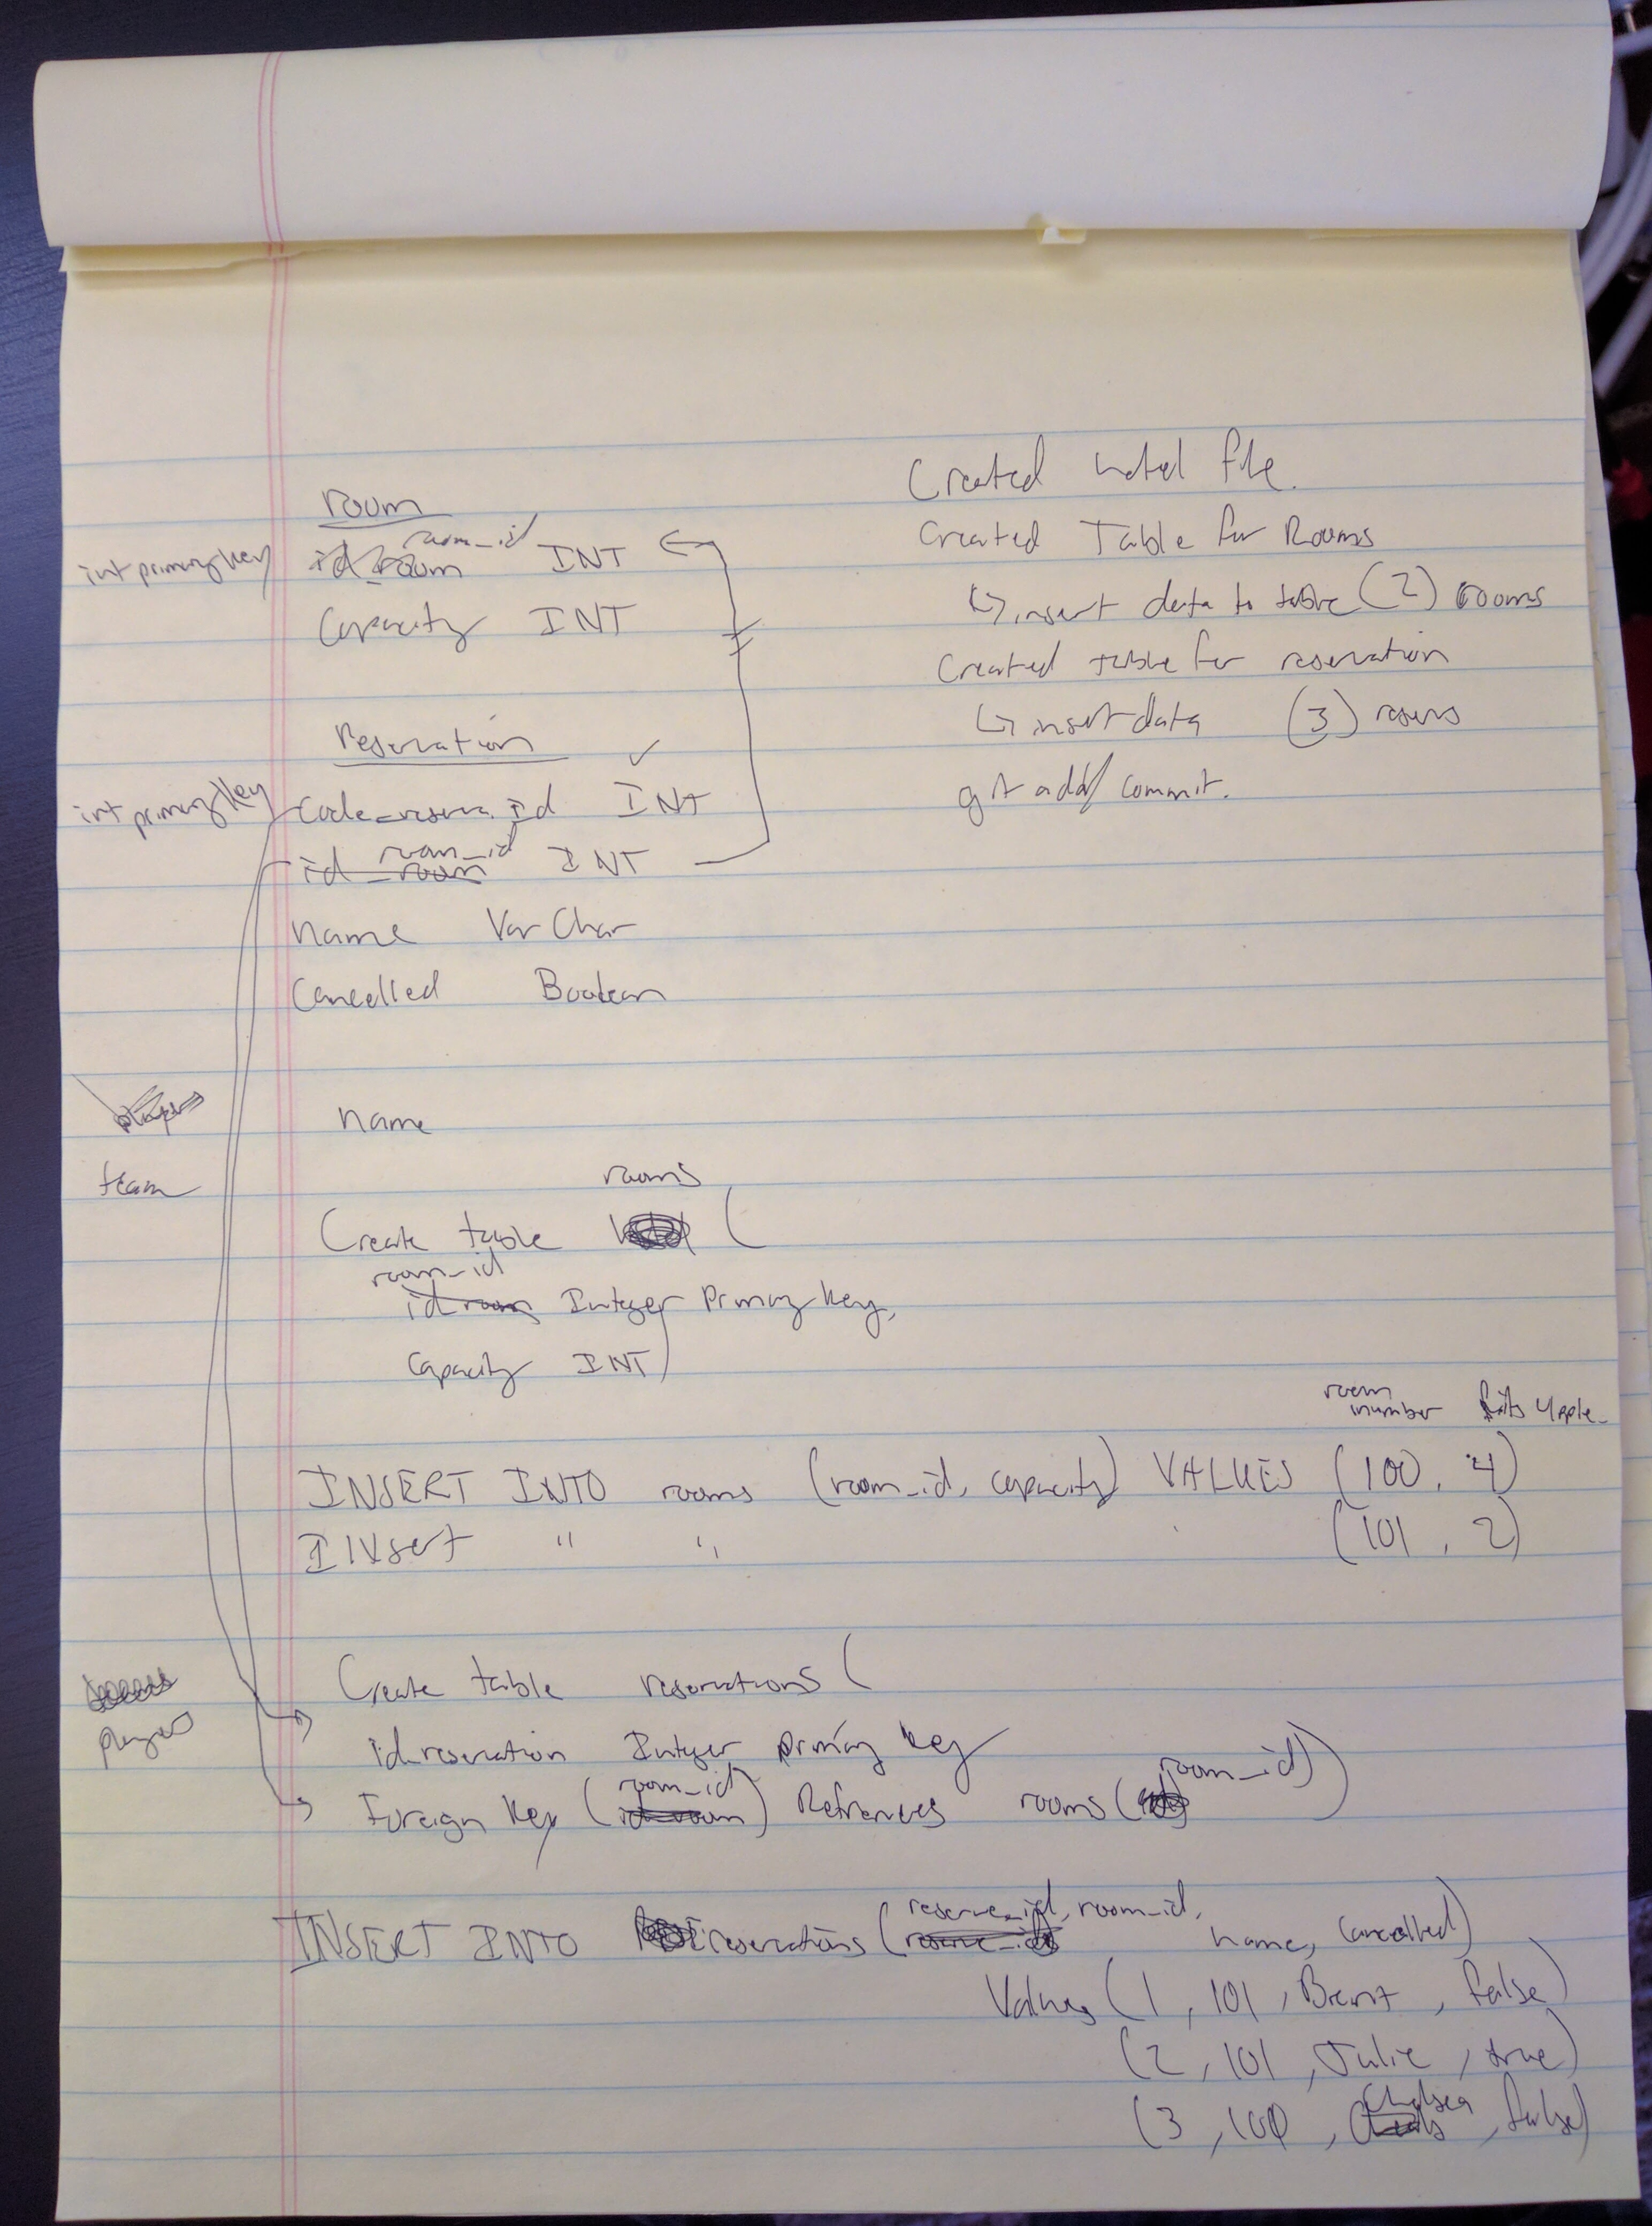 room
room_id
int primary key id_room INT
Capacity INT
Reservation ✓
int primary key code_reserv. id INT
room_id
id_room INT
name VarChar
Cancelled Boolean
Created hotel file.
Created Table for Rooms
↳ insert data to table (2) rooms
Created table for reservation
↳ insert data (3) reservs
git add/commit.
players name
team
rooms
Create table (
room_id
id_room Integer Primary key,
Capacity INT)
room
number fits 4 ppl.
INSERT INTO rooms (room_id, capacity) VALUES (100, 4)
INSert " " (101, 2)
Create table reservations (
players
id_reservation Integer primary key
room_id room_id))
Foreign key (id_room) Refrences rooms (
reserve_id, room_id,
INSERT INTO reservations (reserve_id name, Cancelled)
Values (1, 101, Brent, false)
(2, 101, Julie, true)
Chelsea
(3, 100, , false)